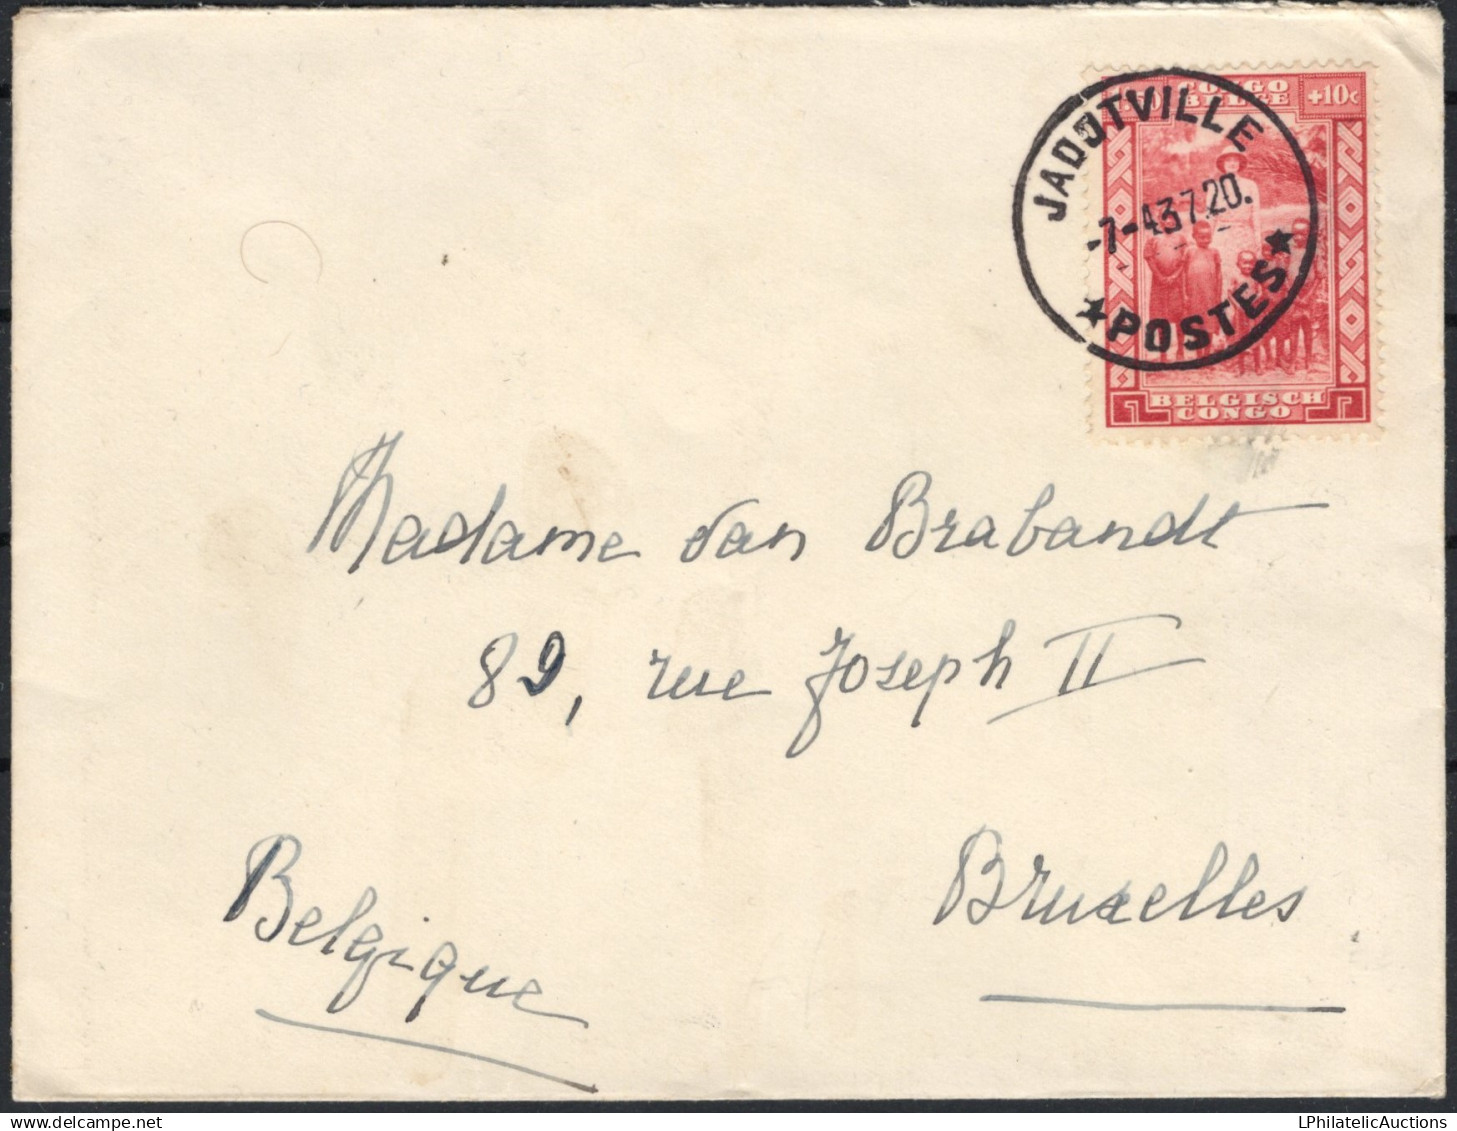 CONGO +10c
BELGE
JADOTVILLE
-7-4.37.20.
★POSTES★
BELGISCH
CONGO
Madame van Brabandt
89, rue Joseph II
Bruxelles
Belgique
LPhilatelicAuctions